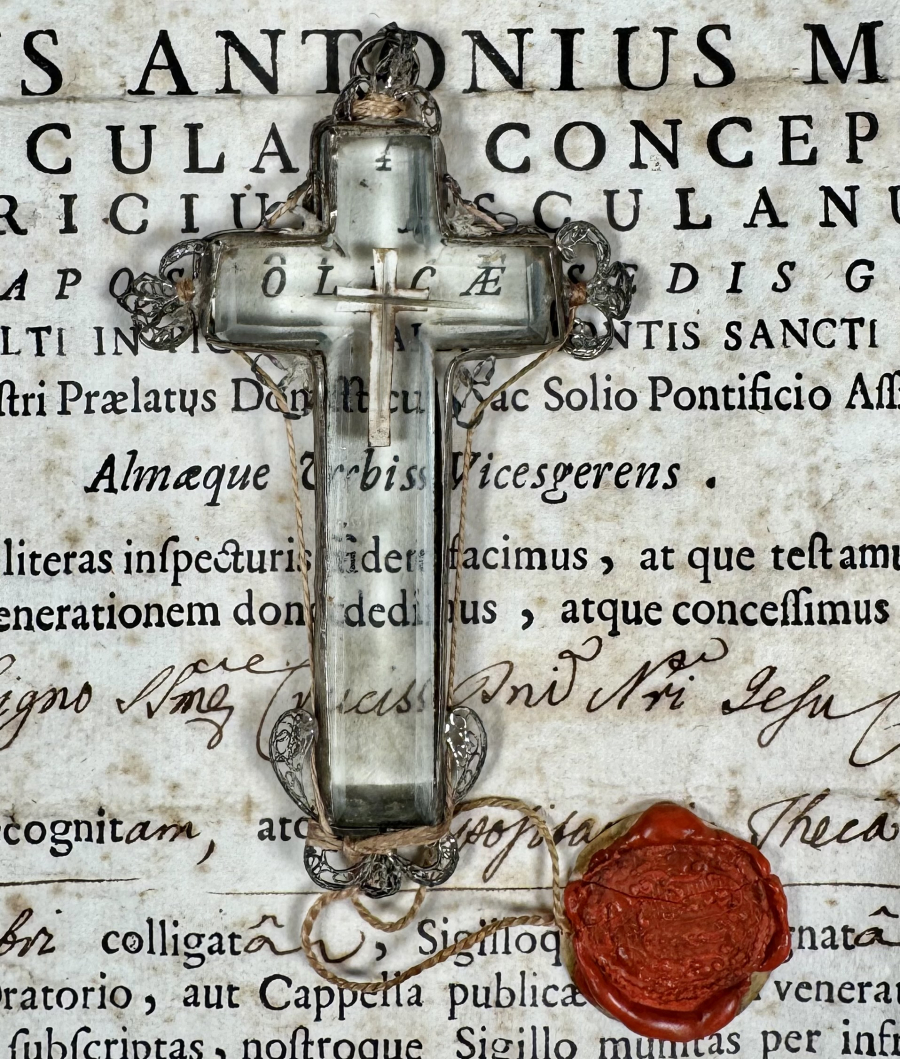 S ANTONIUS M
CULA CONCEP
RICIU SCULANU
APOS OLICÆ SEDIS G
LTI IN NTIS SANCTI
ſtri Prælatus Domeſticu ac Solio Pontificio Aſſi
Almæque Urbis Vicesgerens .
literas inſpecturis fidem facimus , at que teſtamu
enerationem dono dedimus , atque conceſſimus
igno SSmæ Crucis Dni Nri Jesu
cognitam, atq Theca
bri colligatâ , Sigilloq gnatâ
Oratorio , aut Cappella publicæ venerat
ſubſcriptas , noſtroque Sigillo munitas per infr